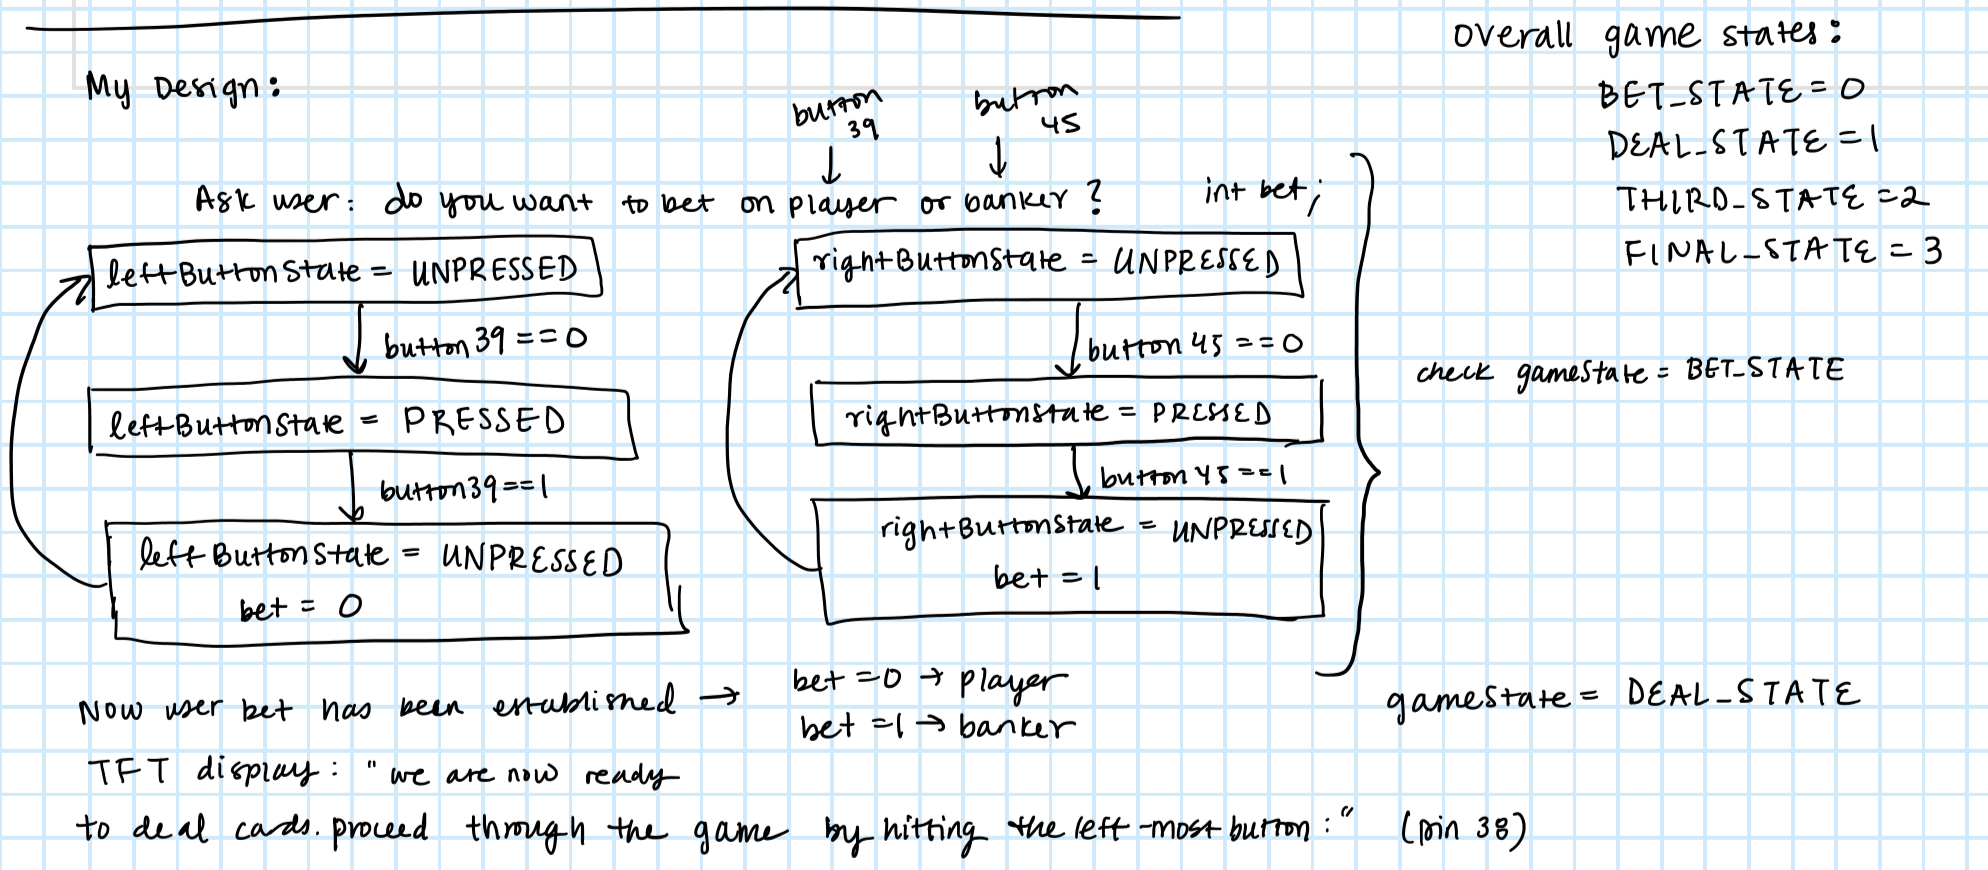 My Design:
button
39
button
45
Ask user: do you want to bet on player or banker?
int bet;
leftButtonState = UNPRESSED
button 39 == 0
leftButtonState = PRESSED
button39==1
leftButtonState = UNPRESSED
bet = 0
rightButtonState = UNPRESSED
button 45 == 0
rightButtonState = PRESSED
button 45 ==1
rightButtonState = UNPRESSED
bet = 1
overall game states:
BET_STATE = 0
DEAL_STATE =1
THIRD_STATE =2
FINAL_STATE = 3
check gamestate = BET_STATE
Now user bet has been established →
bet =0 → player
bet =1 → banker
gamestate = DEAL_STATE
TFT display: "we are now ready
to deal cards. proceed through the game by hitting the left-most button:" (pin 38)